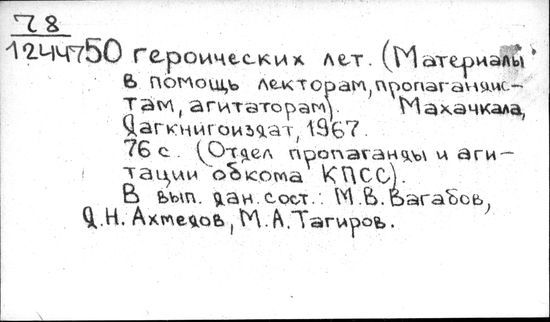 78
124475
50 героических лет. (Материалы
в помощь лекторам, пропагандис-
там, агитаторам). Махачкала,
Дагкнигоиздат, 1967.
76 с. (Отдел пропаганды и аги-
тации обкома КПСС).
В вып. дан. сост.: М.В. Вагабов,
Д.Н. Ахмедов, М.А. Тагиров.